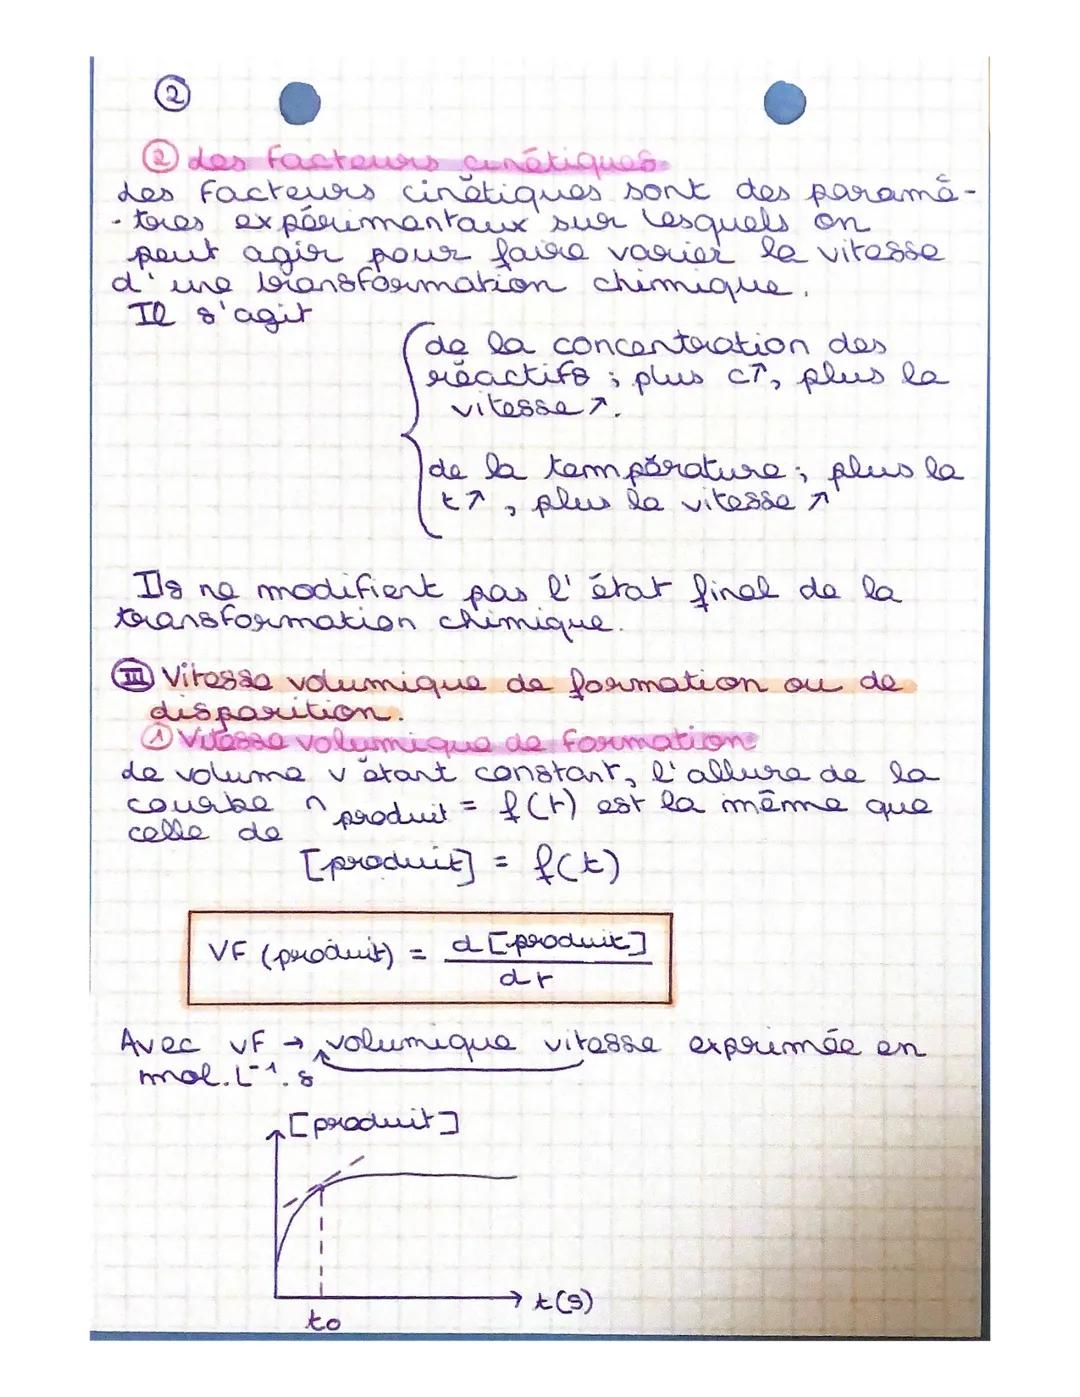 ②
② Les facteurs cinétiques
Les facteurs cinétiques sont des paramè-
-tres expérimentaux sur lesquels on
peut agir pour faire varier la vitesse
d'une transformation chimique.
Il s'agit
de la concentration des
réactifs ; plus c↗, plus la
vitesse ↗.
de la température ; plus la
t↗, plus la vitesse ↗
Ils ne modifient pas l'état final de la
transformation chimique.
III Vitesse volumique de formation ou de
disparition.
① Vitesse volumique de formation
Le volume v étant constant, l'allure de la
courbe n produit = f(t) est la même que
celle de
[produit] = f(t)
VF (produit) = d[produit]
dt
Avec VF → volumique vitesse exprimée en
mol.L⁻¹.s
[produit]
t(s)
to